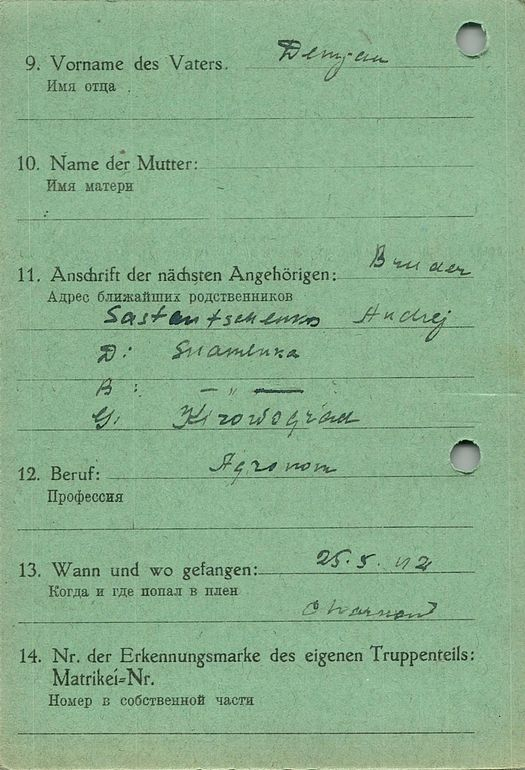 9. Vorname des Vaters. Demjan
Имя отца
10. Name der Mutter:
Имя матери
11. Anschrift der nächsten Angehörigen: Bruder
Адрес ближайших родственников
Andrej
D: Snamenka
B: — „ —
G: Kirowograd
12. Beruf: Agronom
Профессия
13. Wann und wo gefangen: 25.5.42
Когда и где попал в плен
14. Nr. der Erkennungsmarke des eigenen Truppenteils:
Matrikei=Nr.
Номер в собственной части